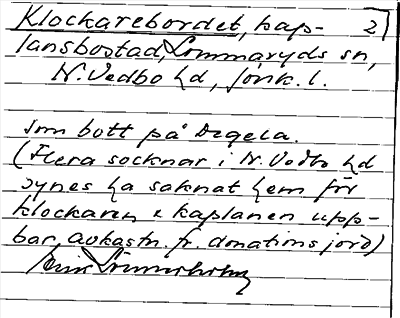 Klockarebordet, kap- 2
lansbostad, Lommaryds sn,
N. Vedbo hd, Jönk. l.
som bott på Degela.
(Flera socknar i N. Vedbo hd
synes ha saknat hem för
klockaren & kaplanen upp-
bar avkastn. fr. donationsjord)